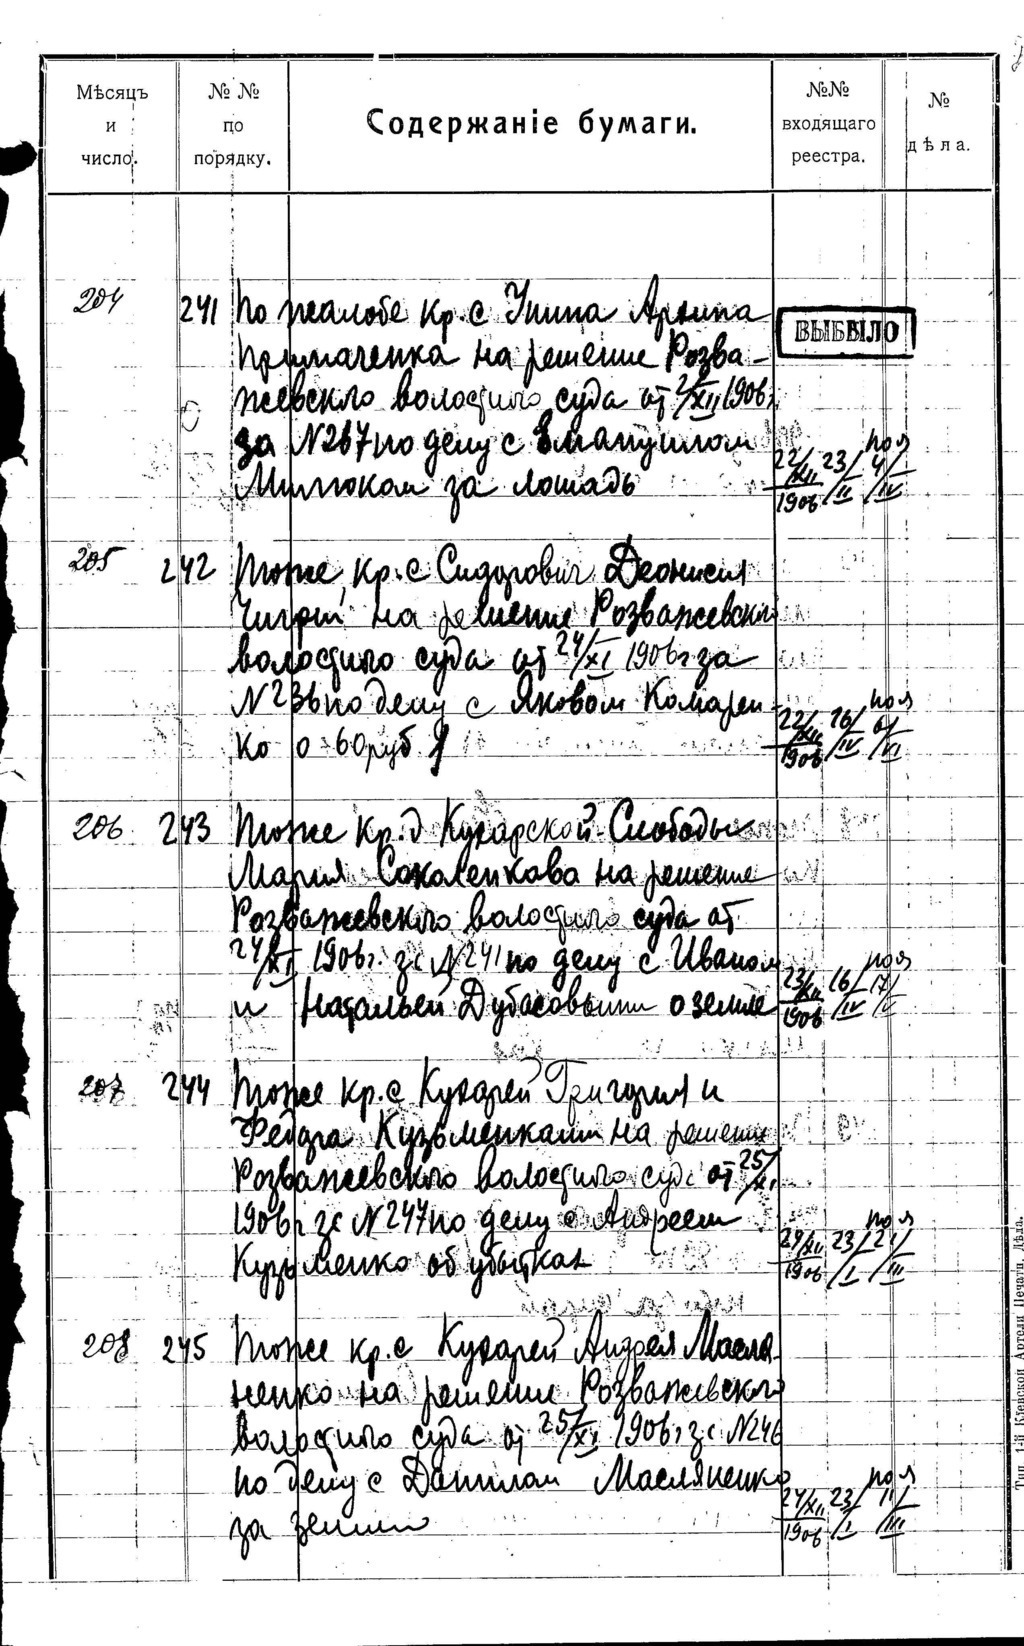 Мѣсяцъ и число.
№ № по порядку.
Содержаніе бумаги.
№№ входящаго реестра.
№ дѣла.
204 241 По жалобе кр. с. Унина Архипа
Примаченка на решение Розва-
жевскго волостного суда от 2/XII 1906 г.
за N 267 по делу с Емануилом
Милюком за лошадь
ВЫБЫЛО
22/XII 1906 23/II пол 4/IV
205 242 Тоже, кр. с. Сидорович Деонисия
Чигрин на решение Розважевского
волостного суда от 24/XI 1906 г за
N 236 по делу с Яковом Комарен-
ко о 60 руб
22/XII 1906 26/IV пол 6/VI
206 243 Тоже кр. д. Кухарской Слободы
Мария Соколенкова на решение
Розважевского волостного суда от
24/XI 1906 г. за N 241 по делу с Иваном
и Натальей Дубасовыми о земле
23/XII 1906 16/IV пол 17/V
207 244 Тоже кр. с. Кухарей Григория и
Федора Кузьменками на решение
Розважевского волостного суда от 25/XI
1906 г за N 247 по делу с Андреем
Кузьменко об убытках
29/XII 1906 23/I пол 21/III
208 245 Тоже кр. с. Кухарей Андрея Масля-
ненко на решение Розважевского
волостного суда от 25/XI 1906 г за N 246
по делу с Данилом Масляненко
за землю
24/XII 1906 23/I пол 11/III
Тип. 1-й Кіевской Артели Печатн. Дѣла.